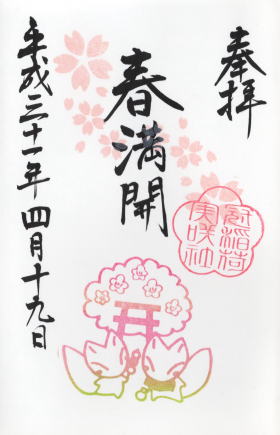 奉拝
春満開
冠稲荷
実咲社
平成三十一年四月十九日